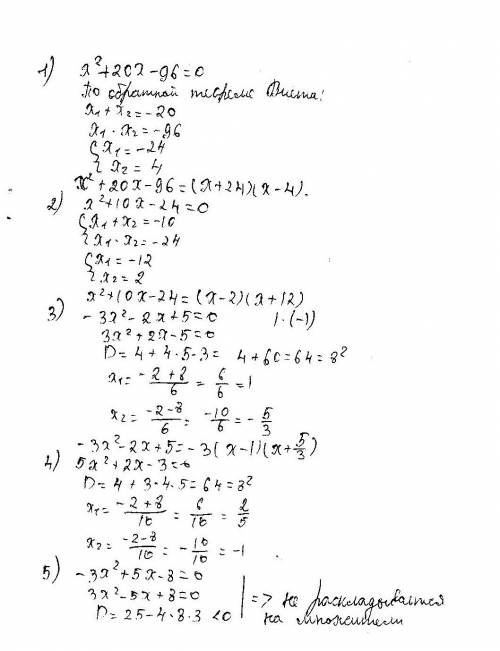 1) x²+20x-96=0
По обратной теореме Виета:
x₁+x₂=-20
x₁·x₂=-96
{x₁=-24
{x₂=4
x²+20x-96=(x+24)(x-4).
2) x²+10x-24=0
{x₁+x₂=-10
{x₁·x₂=-24
{x₁=-12
{x₂=2
x²+10x-24=(x-2)(x+12)
3) -3x²-2x+5=0 |·(-1)
3x²+2x-5=0
D=4+4·5·3= 4+60=64=8²
x₁=(-2+8)/6=6/6=1
x₂=(-2-8)/6=-10/6=-5/3
-3x²-2x+5=-3(x-1)(x+5/3)
4) 5x²+2x-3=0
D=4+3·4·5=64=8²
x₁=(-2+8)/10=6/10=2/5
x₂=(-2-8)/10=-10/10=-1
5) -3x²+5x-8=0
3x²-5x+8=0 | => не раскладывается
D=25-4·8·3<0 | на множители